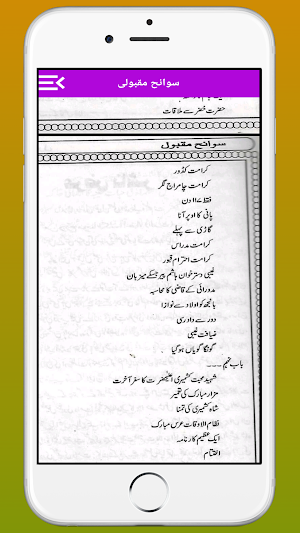 سوانح مقبولی
حضرت خضر سے ملاقات
سوانح مقبولی
کرامت کڈور
کرامت چامراج نگر
فقط ۱۷ دن
پانی کا اوپر آنا
گاڑی سے پہلے
کرامت مدراس
کرامت احترام قبور
غیبی دسترخوان ہاشم پیر جسکے میزبان
مدورائی کے قاضی کا محاسبہ
بانجھ کو اولاد سے نوازا
دور سے داد رسی
ضیافت غیبی
گونگا گویاں ہوگیا
باب نہم ۔۔۔۔
شہید محبت کشمیری اعلیٰحضرت کا سفر آخرت
مزار مبارک کی تعمیر
شاہ کشمیری کی تمنا
نظام الاوقات عرس مبارک
ایک عظیم کارنامہ
اختتام